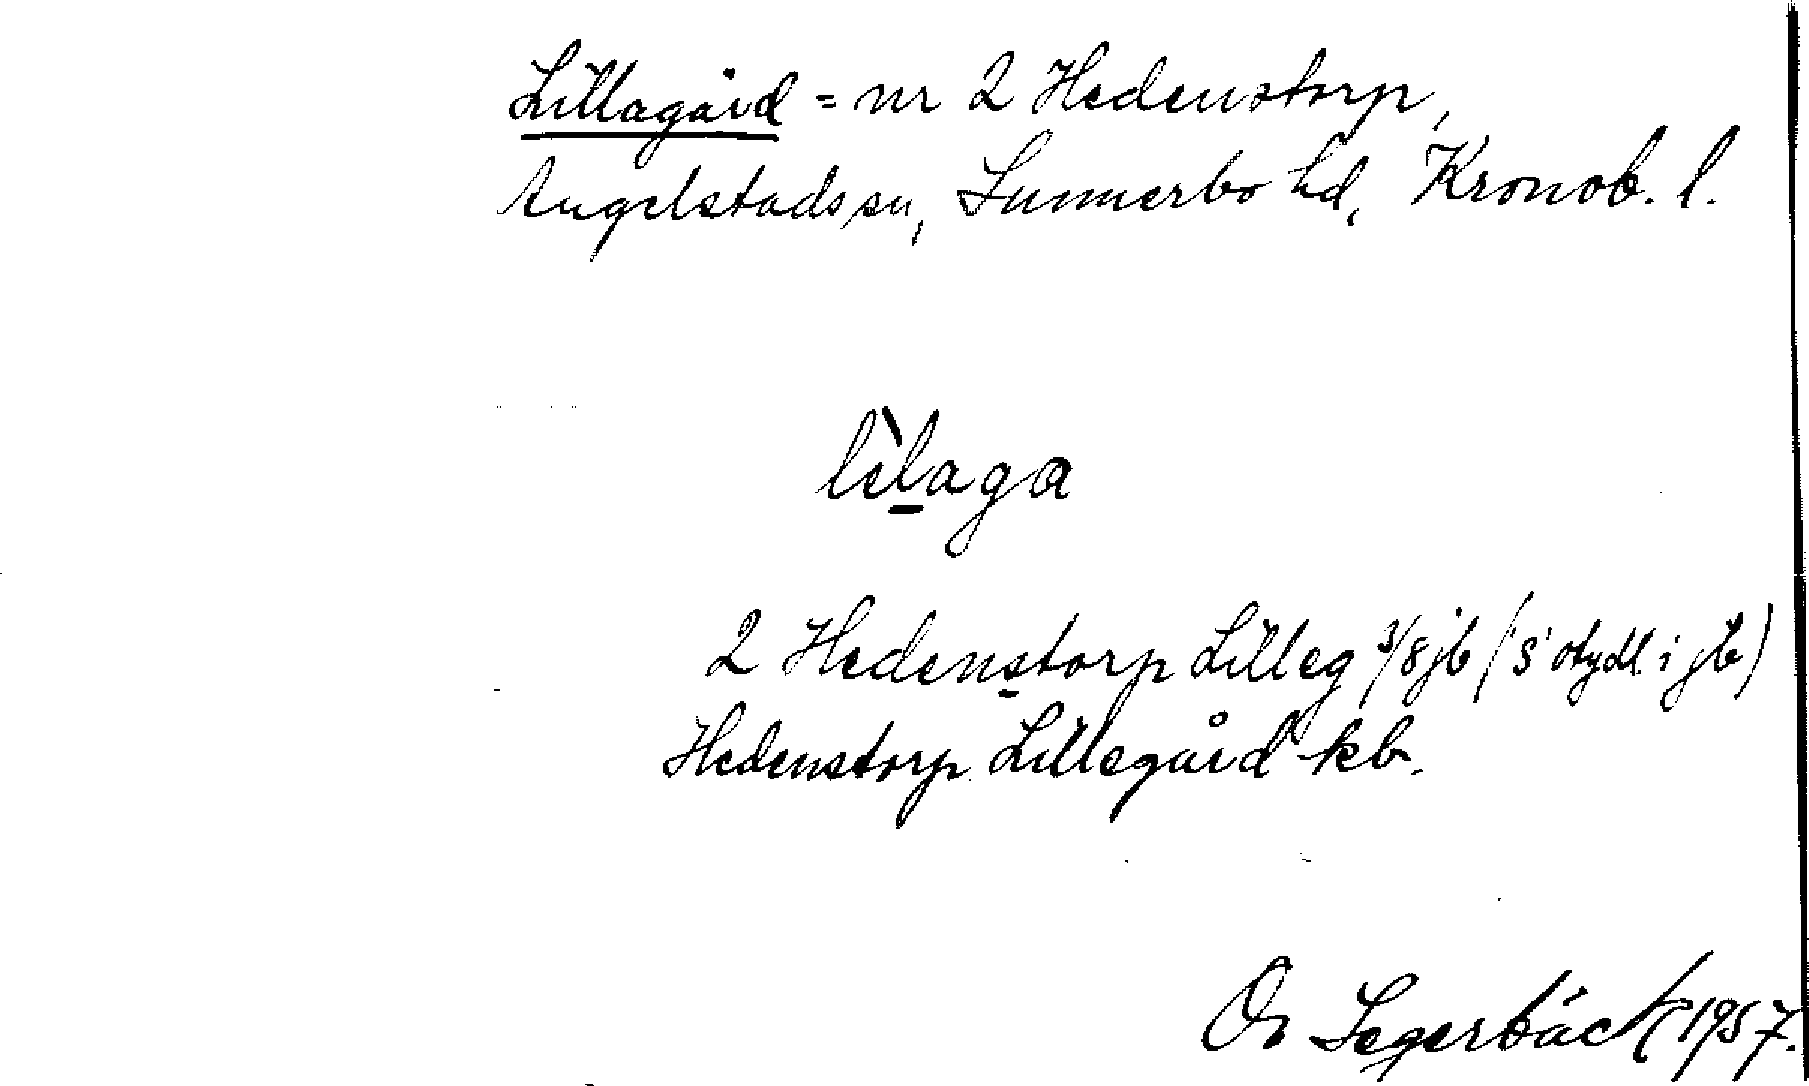 Lillagård = nr 2 Hedenstorp,
Angelstads sn, Sunnerbo hd, Kronob. l.
lìlaga
2 Hedenstorp Lilleg 3/8 jb ('s' otydl. i jb)
Hedenstorp Lillegård kb.
Segerbäck 1957.